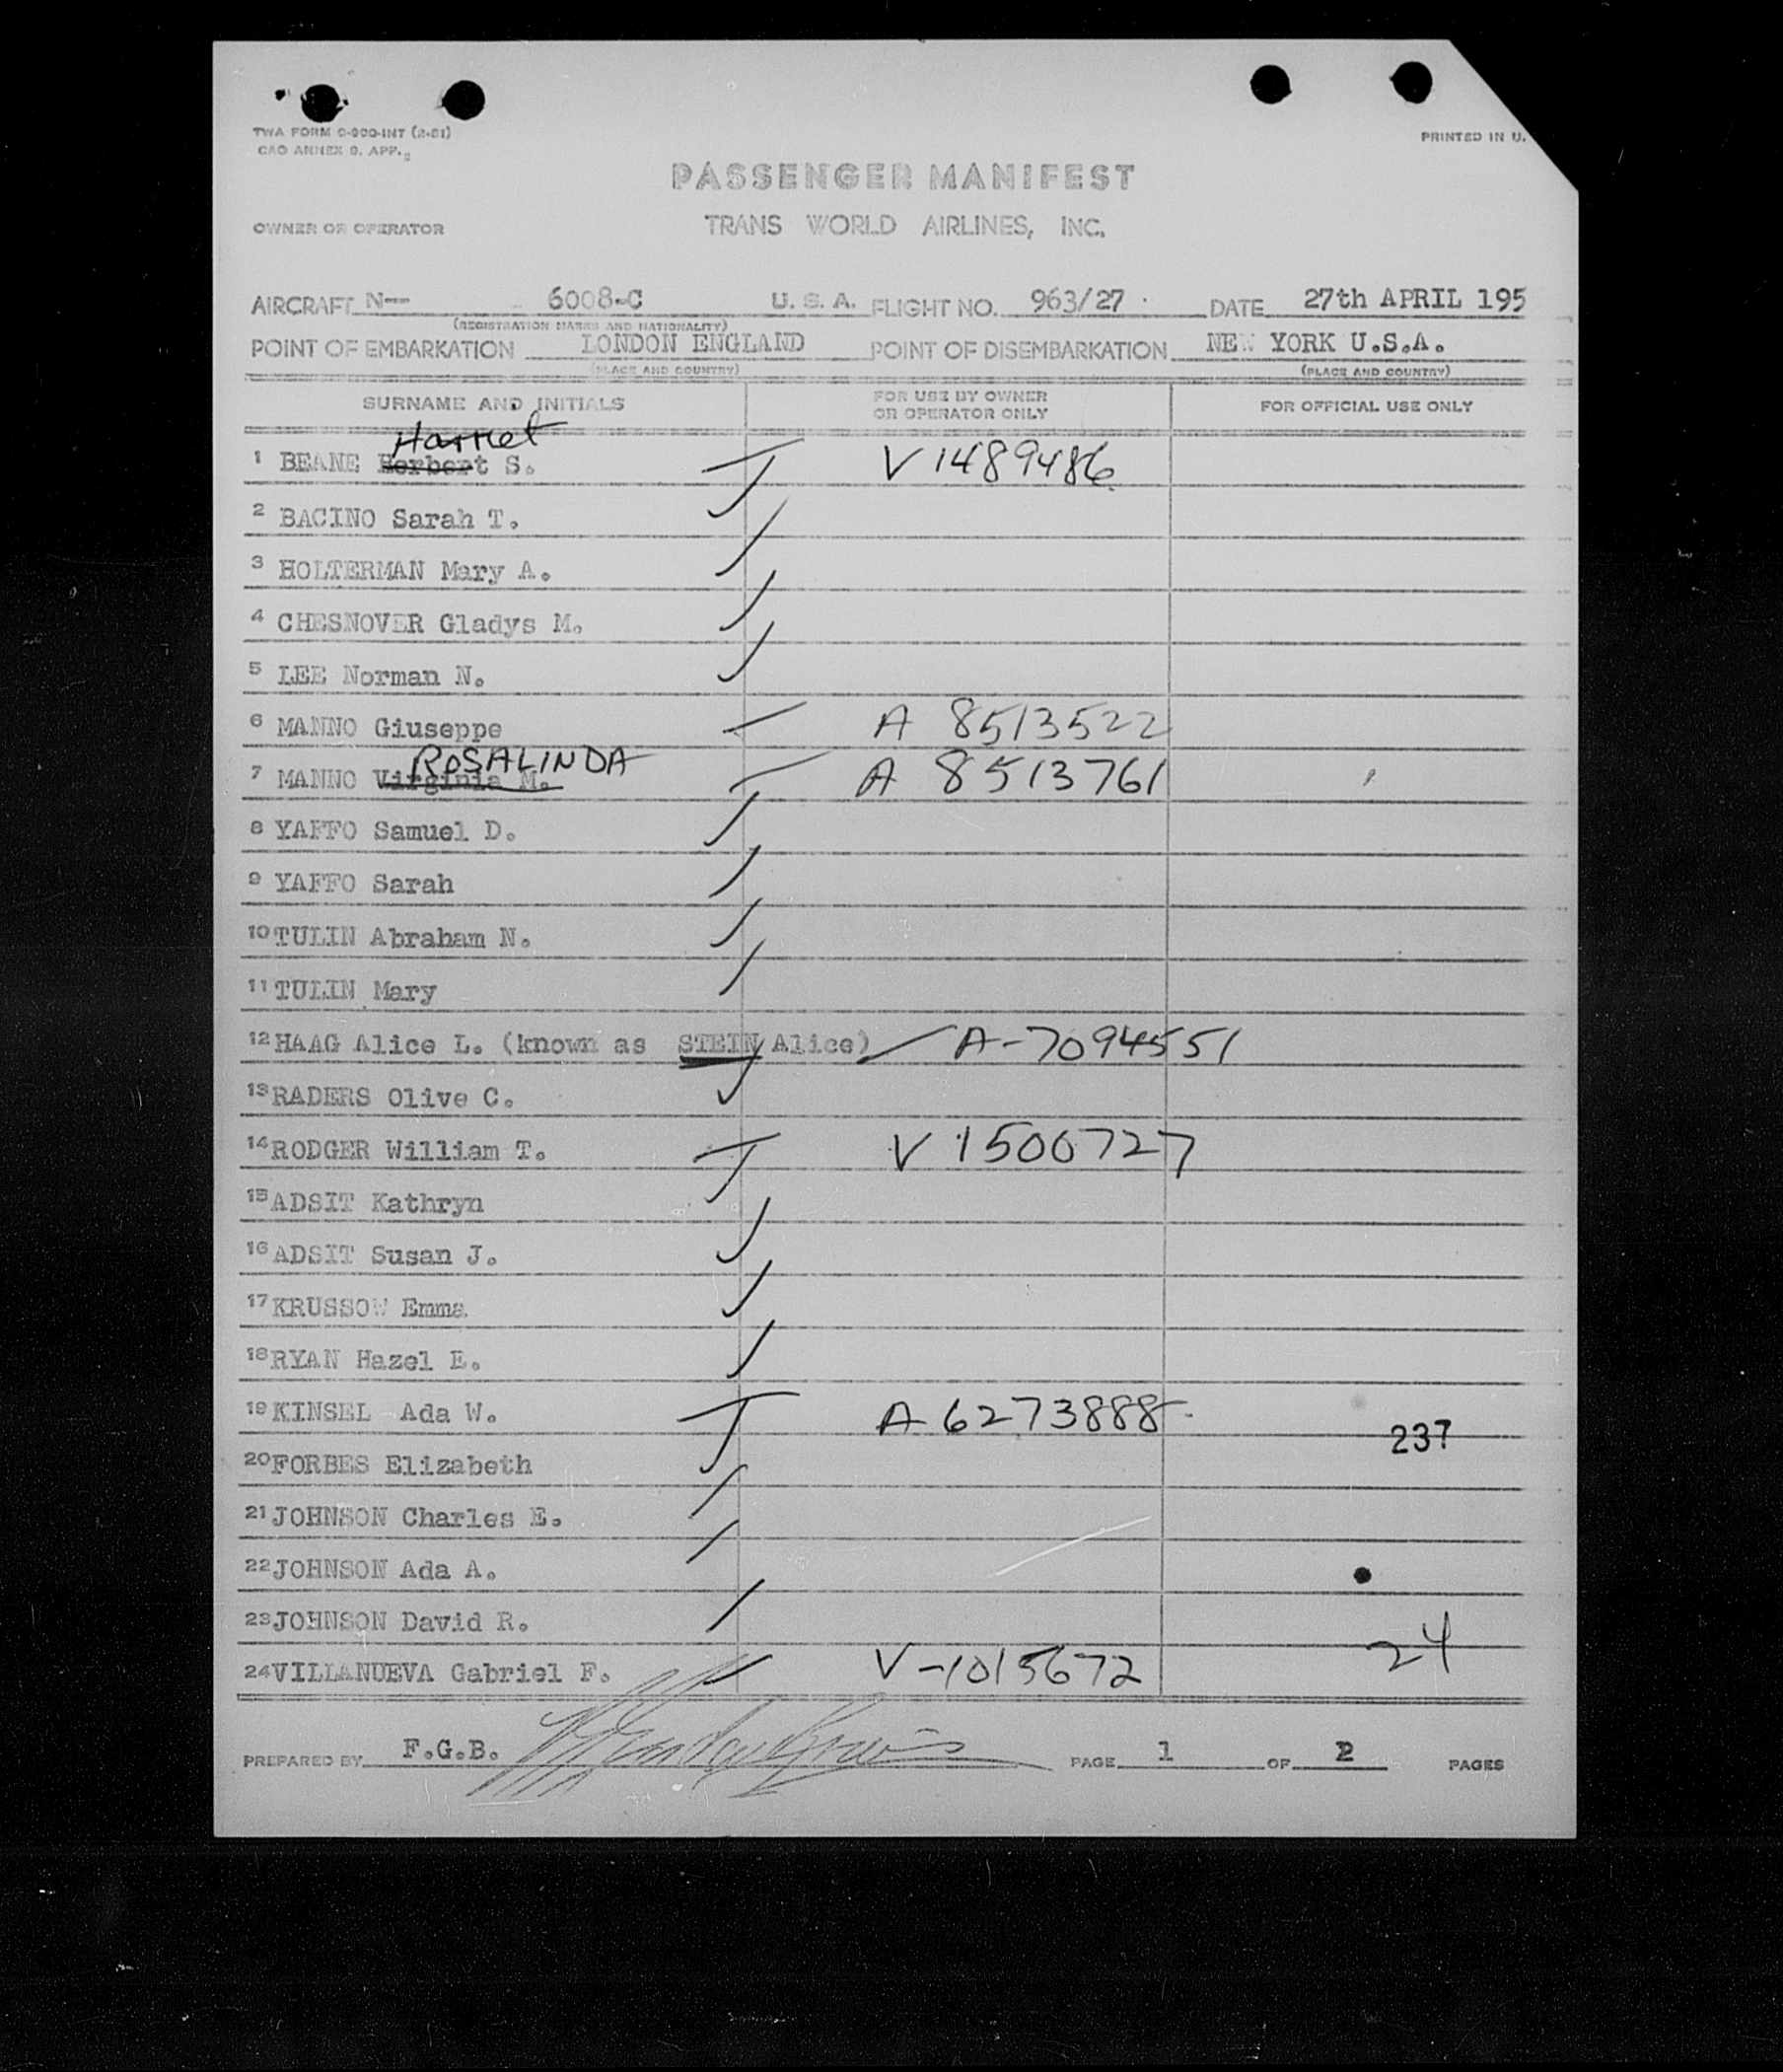 TWA FORM O-900-INT (2-51)
CAO ANNEX 9. APP.
PRINTED IN U.
PASSENGER MANIFEST
OWNER OR OPERATOR TRANS WORLD AIRLINES, INC.
AIRCRAFT N-- 6008-C U. S. A. FLIGHT NO. 963/27 DATE 27th APRIL 195
(REGISTRATION MARKS AND NATIONALITY)
POINT OF EMBARKATION LONDON ENGLAND POINT OF DISEMBARKATION NEW YORK U.S.A.
(PLACE AND COUNTRY) (PLACE AND COUNTRY)
SURNAME AND INITIALS FOR USE BY OWNER OR OPERATOR ONLY FOR OFFICIAL USE ONLY
Harriet
1 BEANE Herbert S. V 1489486
2 BACINO Sarah T.
3 HOLTERMAN Mary A.
4 CHESNOVER Gladys M.
5 LEE Norman N.
6 MANNO Giuseppe A 8513522
ROSALINDA
7 MANNO Virginia M. A 8513761
8 YAFFO Samuel D.
9 YAFFO Sarah
10 TULIN Abraham N.
11 TULIN Mary
12 HAAG Alice L. (known as STEIN Alice) A-7094551
13 RADERS Olive C.
14 RODGER William T. V 1500727
15 ADSIT Kathryn
16 ADSIT Susan J.
17 KRUSSOW Emma
18 RYAN Hazel E.
19 KINSEL Ada W. A 6273888
237
20 FORBES Elizabeth
21 JOHNSON Charles E.
22 JOHNSON Ada A.
23 JOHNSON David R.
24
24 VILLANUEVA Gabriel F. V-1015672
PREPARED BY F.G.B. PAGE 1 OF 2 PAGES